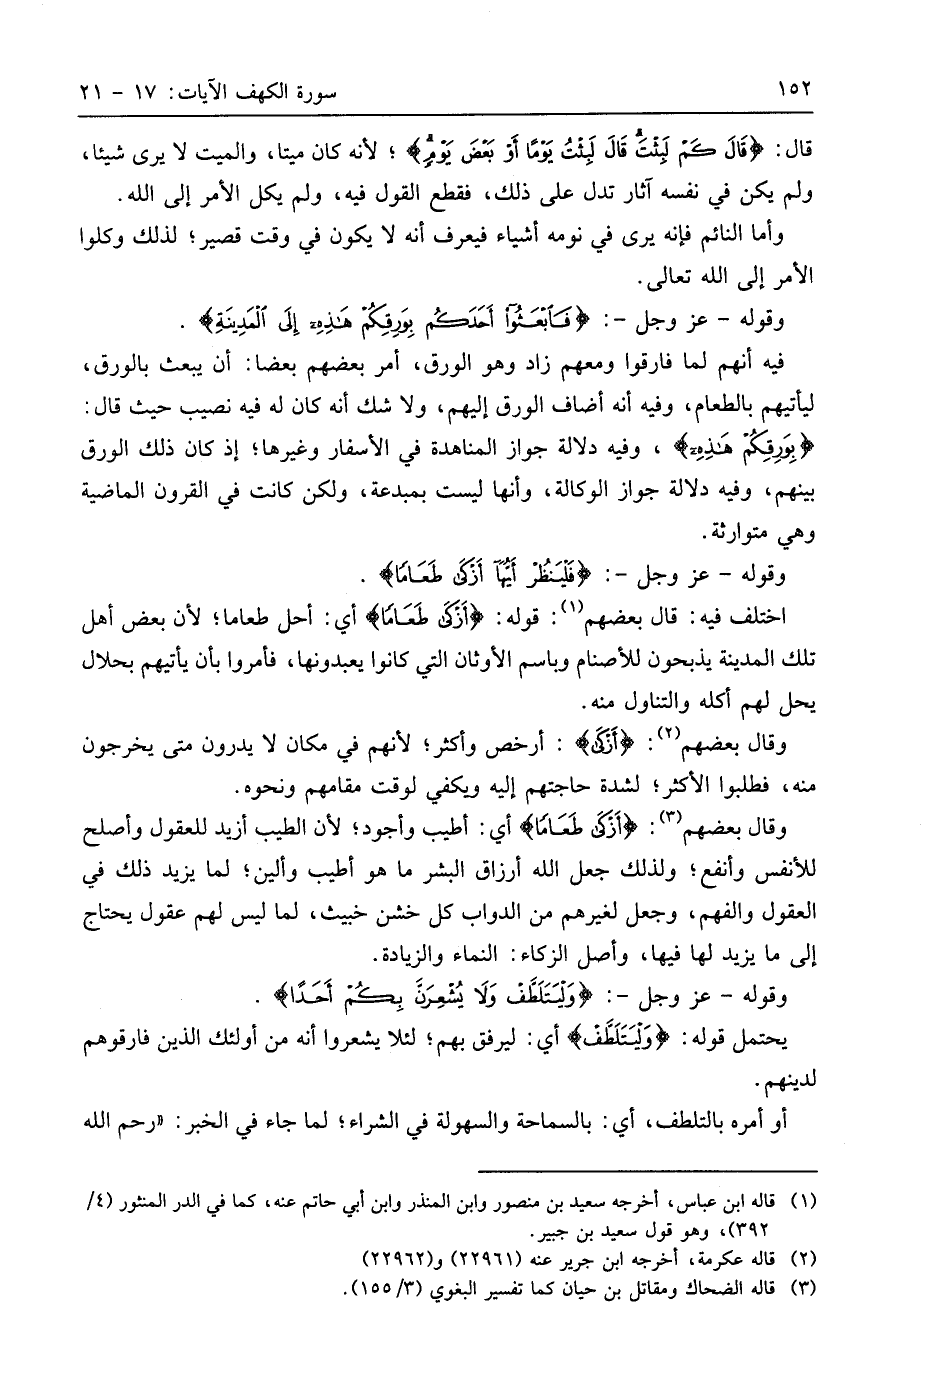 ١٥٢ سورة الكهف الآيات: ١٧ - ٢١
قال: ﴿قَالَ كَمْ لَبِثْتَ قَالَ لَبِثْتُ يَوْمًا أَوْ بَعْضَ يَوْمٍ﴾ ؛ لأنه كان ميتا، والميت لا يرى شيئا،
ولم يكن في نفسه آثار تدل على ذلك، فقطع القول فيه، ولم يكل الأمر إلى الله.
وأما النائم فإنه يرى في نومه أشياء فيعرف أنه لا يكون في وقت قصير؛ لذلك وكلوا
الأمر إلى الله تعالى.
وقوله - عز وجل -: ﴿فَٱبْعَثُوٓا۟ أَحَدَكُم بِوَرِقِكُمْ هَٰذِهِۦٓ إِلَى ٱلْمَدِينَةِ﴾ .
فيه أنهم لما فارقوا ومعهم زاد وهو الورق، أمر بعضهم بعضا: أن يبعث بالورق،
ليأتيهم بالطعام، وفيه أنه أضاف الورق إليهم، ولا شك أنه كان له فيه نصيب حيث قال:
﴿بِوَرِقِكُمْ هَٰذِهِۦٓ﴾ ، وفيه دلالة جواز المناهدة في الأسفار وغيرها؛ إذ كان ذلك الورق
بينهم، وفيه دلالة جواز الوكالة، وأنها ليست بمبدعة، ولكن كانت في القرون الماضية
وهي متوارثة.
وقوله - عز وجل -: ﴿فَلْيَنظُرْ أَيُّهَآ أَزْكَىٰ طَعَامًا﴾ .
اختلف فيه: قال بعضهم(١): قوله: ﴿أَزْكَىٰ طَعَامًا﴾ أي: أحل طعاما؛ لأن بعض أهل
تلك المدينة يذبحون للأصنام وباسم الأوثان التي كانوا يعبدونها، فأمروا بأن يأتيهم بحلال
يحل لهم أكله والتناول منه.
وقال بعضهم(٢): ﴿أَزْكَىٰ﴾ : أرخص وأكثر؛ لأنهم في مكان لا يدرون متى يخرجون
منه، فطلبوا الأكثر؛ لشدة حاجتهم إليه ويكفي لوقت مقامهم ونحوه.
وقال بعضهم(٣): ﴿أَزْكَىٰ طَعَامًا﴾ أي: أطيب وأجود؛ لأن الطيب أزيد للعقول وأصلح
للأنفس وأنفع؛ ولذلك جعل الله أرزاق البشر ما هو أطيب وألين؛ لما يزيد ذلك في
العقول والفهم، وجعل لغيرهم من الدواب كل خشن خبيث، لما ليس لهم عقول يحتاج
إلى ما يزيد لها فيها، وأصل الزكاء: النماء والزيادة.
وقوله - عز وجل -: ﴿وَلْيَتَلَطَّفْ وَلَا يُشْعِرَنَّ بِكُمْ أَحَدًا﴾ .
يحتمل قوله: ﴿وَلْيَتَلَطَّفْ﴾ أي: ليرفق بهم؛ لئلا يشعروا أنه من أولئك الذين فارقوهم
لدينهم.
أو أمره بالتلطف، أي: بالسماحة والسهولة في الشراء؛ لما جاء في الخبر: «رحم الله
(١) قاله ابن عباس، أخرجه سعيد بن منصور وابن المنذر وابن أبي حاتم عنه، كما في الدر المنثور (٤/
٣٩٢)، وهو قول سعيد بن جبير.
(٢) قاله عكرمة، أخرجه ابن جرير عنه (٢٢٩٦١) و(٢٢٩٦٢)
(٣) قاله الضحاك ومقاتل بن حيان كما تفسير البغوي (٣/ ١٥٥).